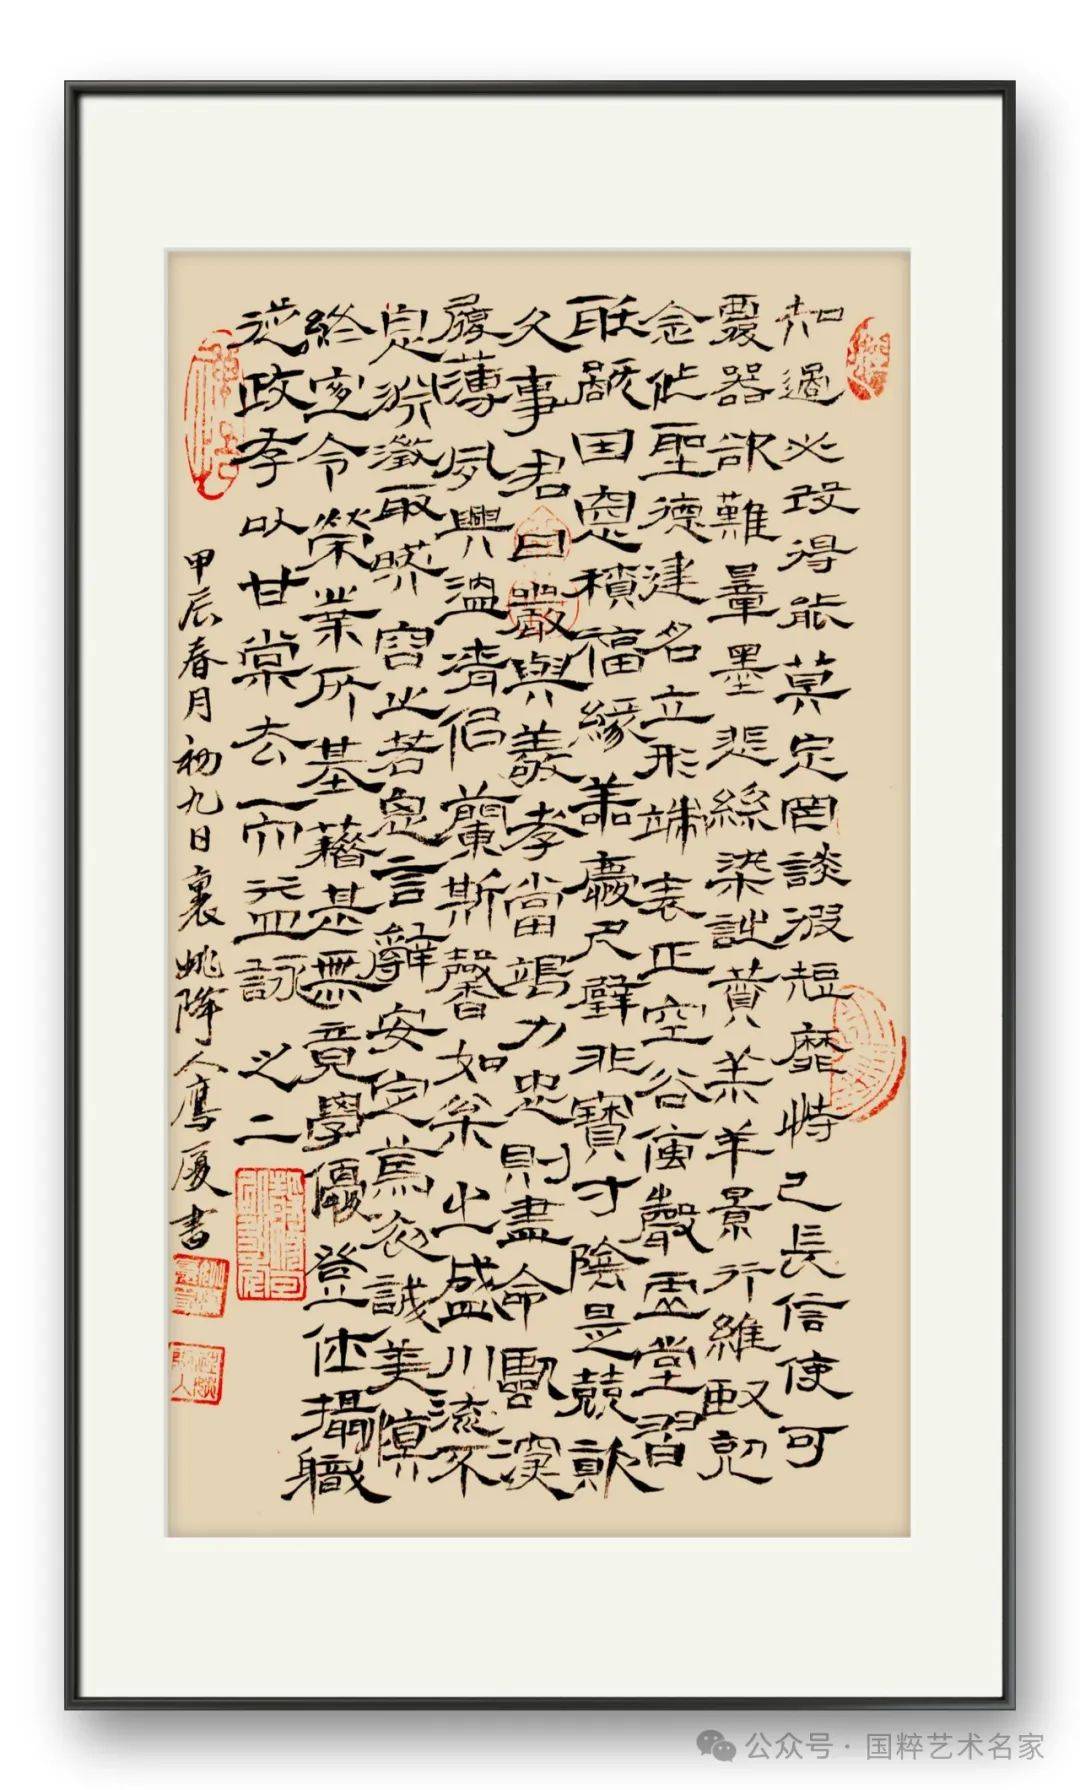 知過必改得能莫忘罔談彼短靡恃己長信使可
覆器欲難量墨悲絲染詩讚羔羊景行維賢剋
念作聖德建名立形端表正空谷傳聲虛堂習
聽禍因惡積福緣善慶尺璧非寶寸陰是競資
父事君曰嚴與敬孝當竭力忠則盡命臨深
履薄夙興溫清似蘭斯馨如松之盛川流不
息淵澄取暎容止若思言辭安定篤初誠美慎
終宜令榮業所基藉甚無竟學優登仕攝職
從政存以甘棠去而益詠之二
甲辰春月初九日裏姚降人鷹厦書
公众号·国粹艺术名家